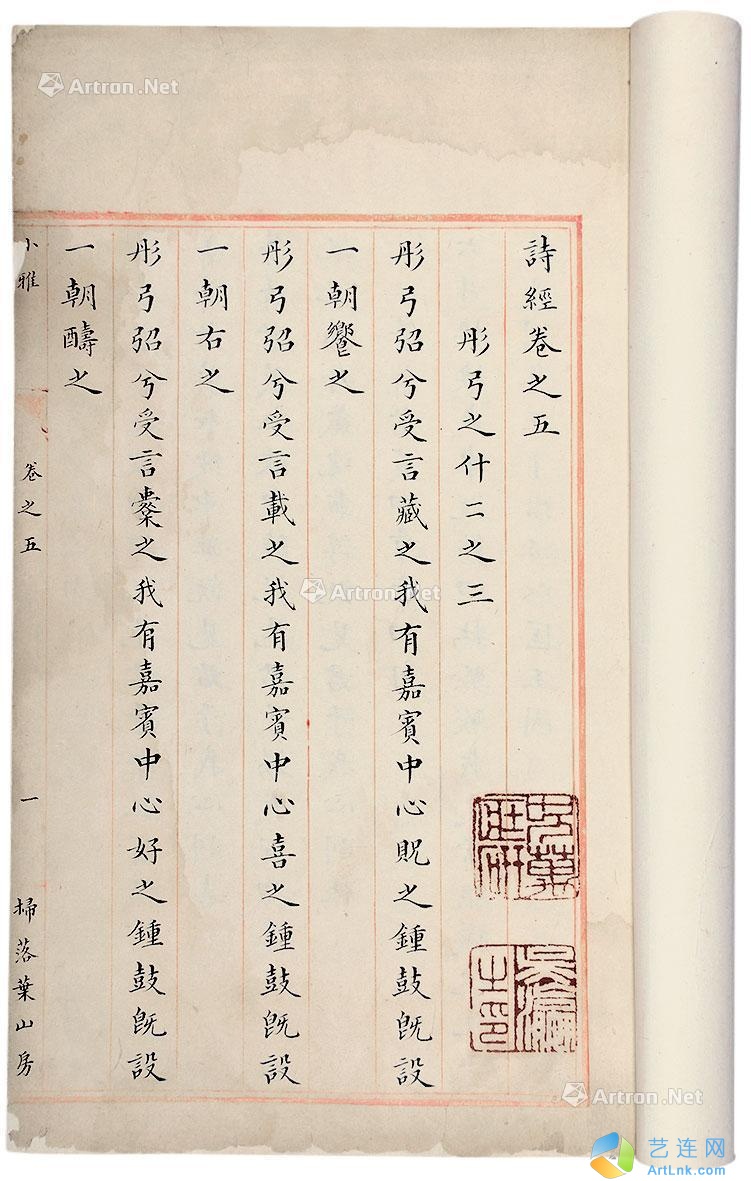 詩經卷之五
彤弓之什二之三
彤弓弨兮受言藏之我有嘉賓中心貺之鍾鼓旣設
一朝饗之
彤弓弨兮受言載之我有嘉賓中心喜之鍾鼓旣設
一朝右之
彤弓弨兮受言櫜之我有嘉賓中心好之鍾鼓旣設
一朝醻之
小雅
卷之五
一
掃落葉山房
Artron.Net
Artron.Net
Artron.Net
艺连网
ArtLnk.com